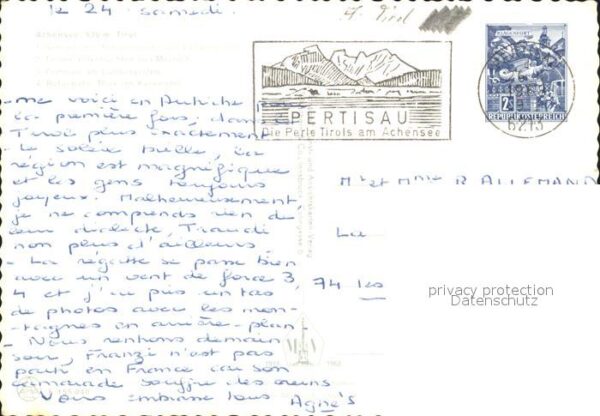 le 24. samedi.
Achensee, 930 m, Tirol
PERTISAU
Die Perle Tirols am Achensee
REPUBLIK ÖSTERREICH
6213
- me voici en Autriche pour
la première fois, dans le
Tirol plus exactement.
- le soleil brille, la
région est magnifique
et les gens toujours
joyeux. Malheureusement,
je ne comprends rien de
leur dialecte, Traudi
non plus d'ailleurs.
- La régatte se passe bien
avec un vent de force 3,
4 et j'ai pris un tas
de photos avec les mon-
tagnes en arrière-plan -
- Nous rentrons demain
soir, Franzi n'est pas
parti en France car son
camarade souffre des reins
- Vous embrasse tous Agnès
Mr et Mme R. ALLEMAND
La
74 Les
privacy protection
Datenschutz